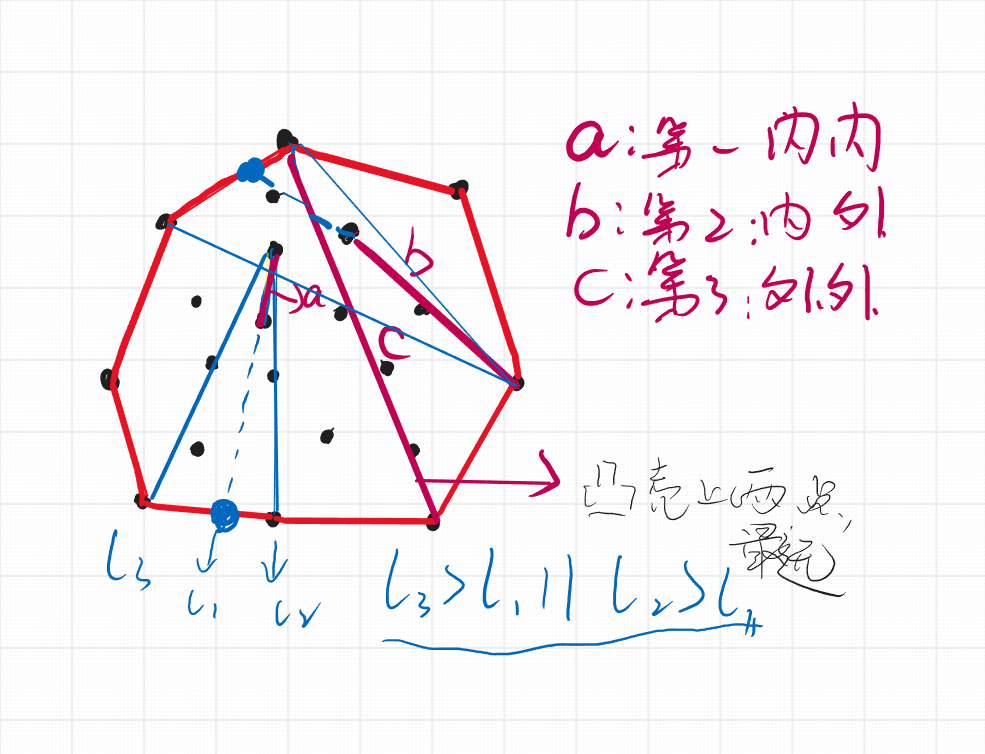 a:第一内内
b:第2:内外
c:第3:外外
b
a
c
凸壳上两点,
最远
l3
l1
l2
l3>l1||l2>l1